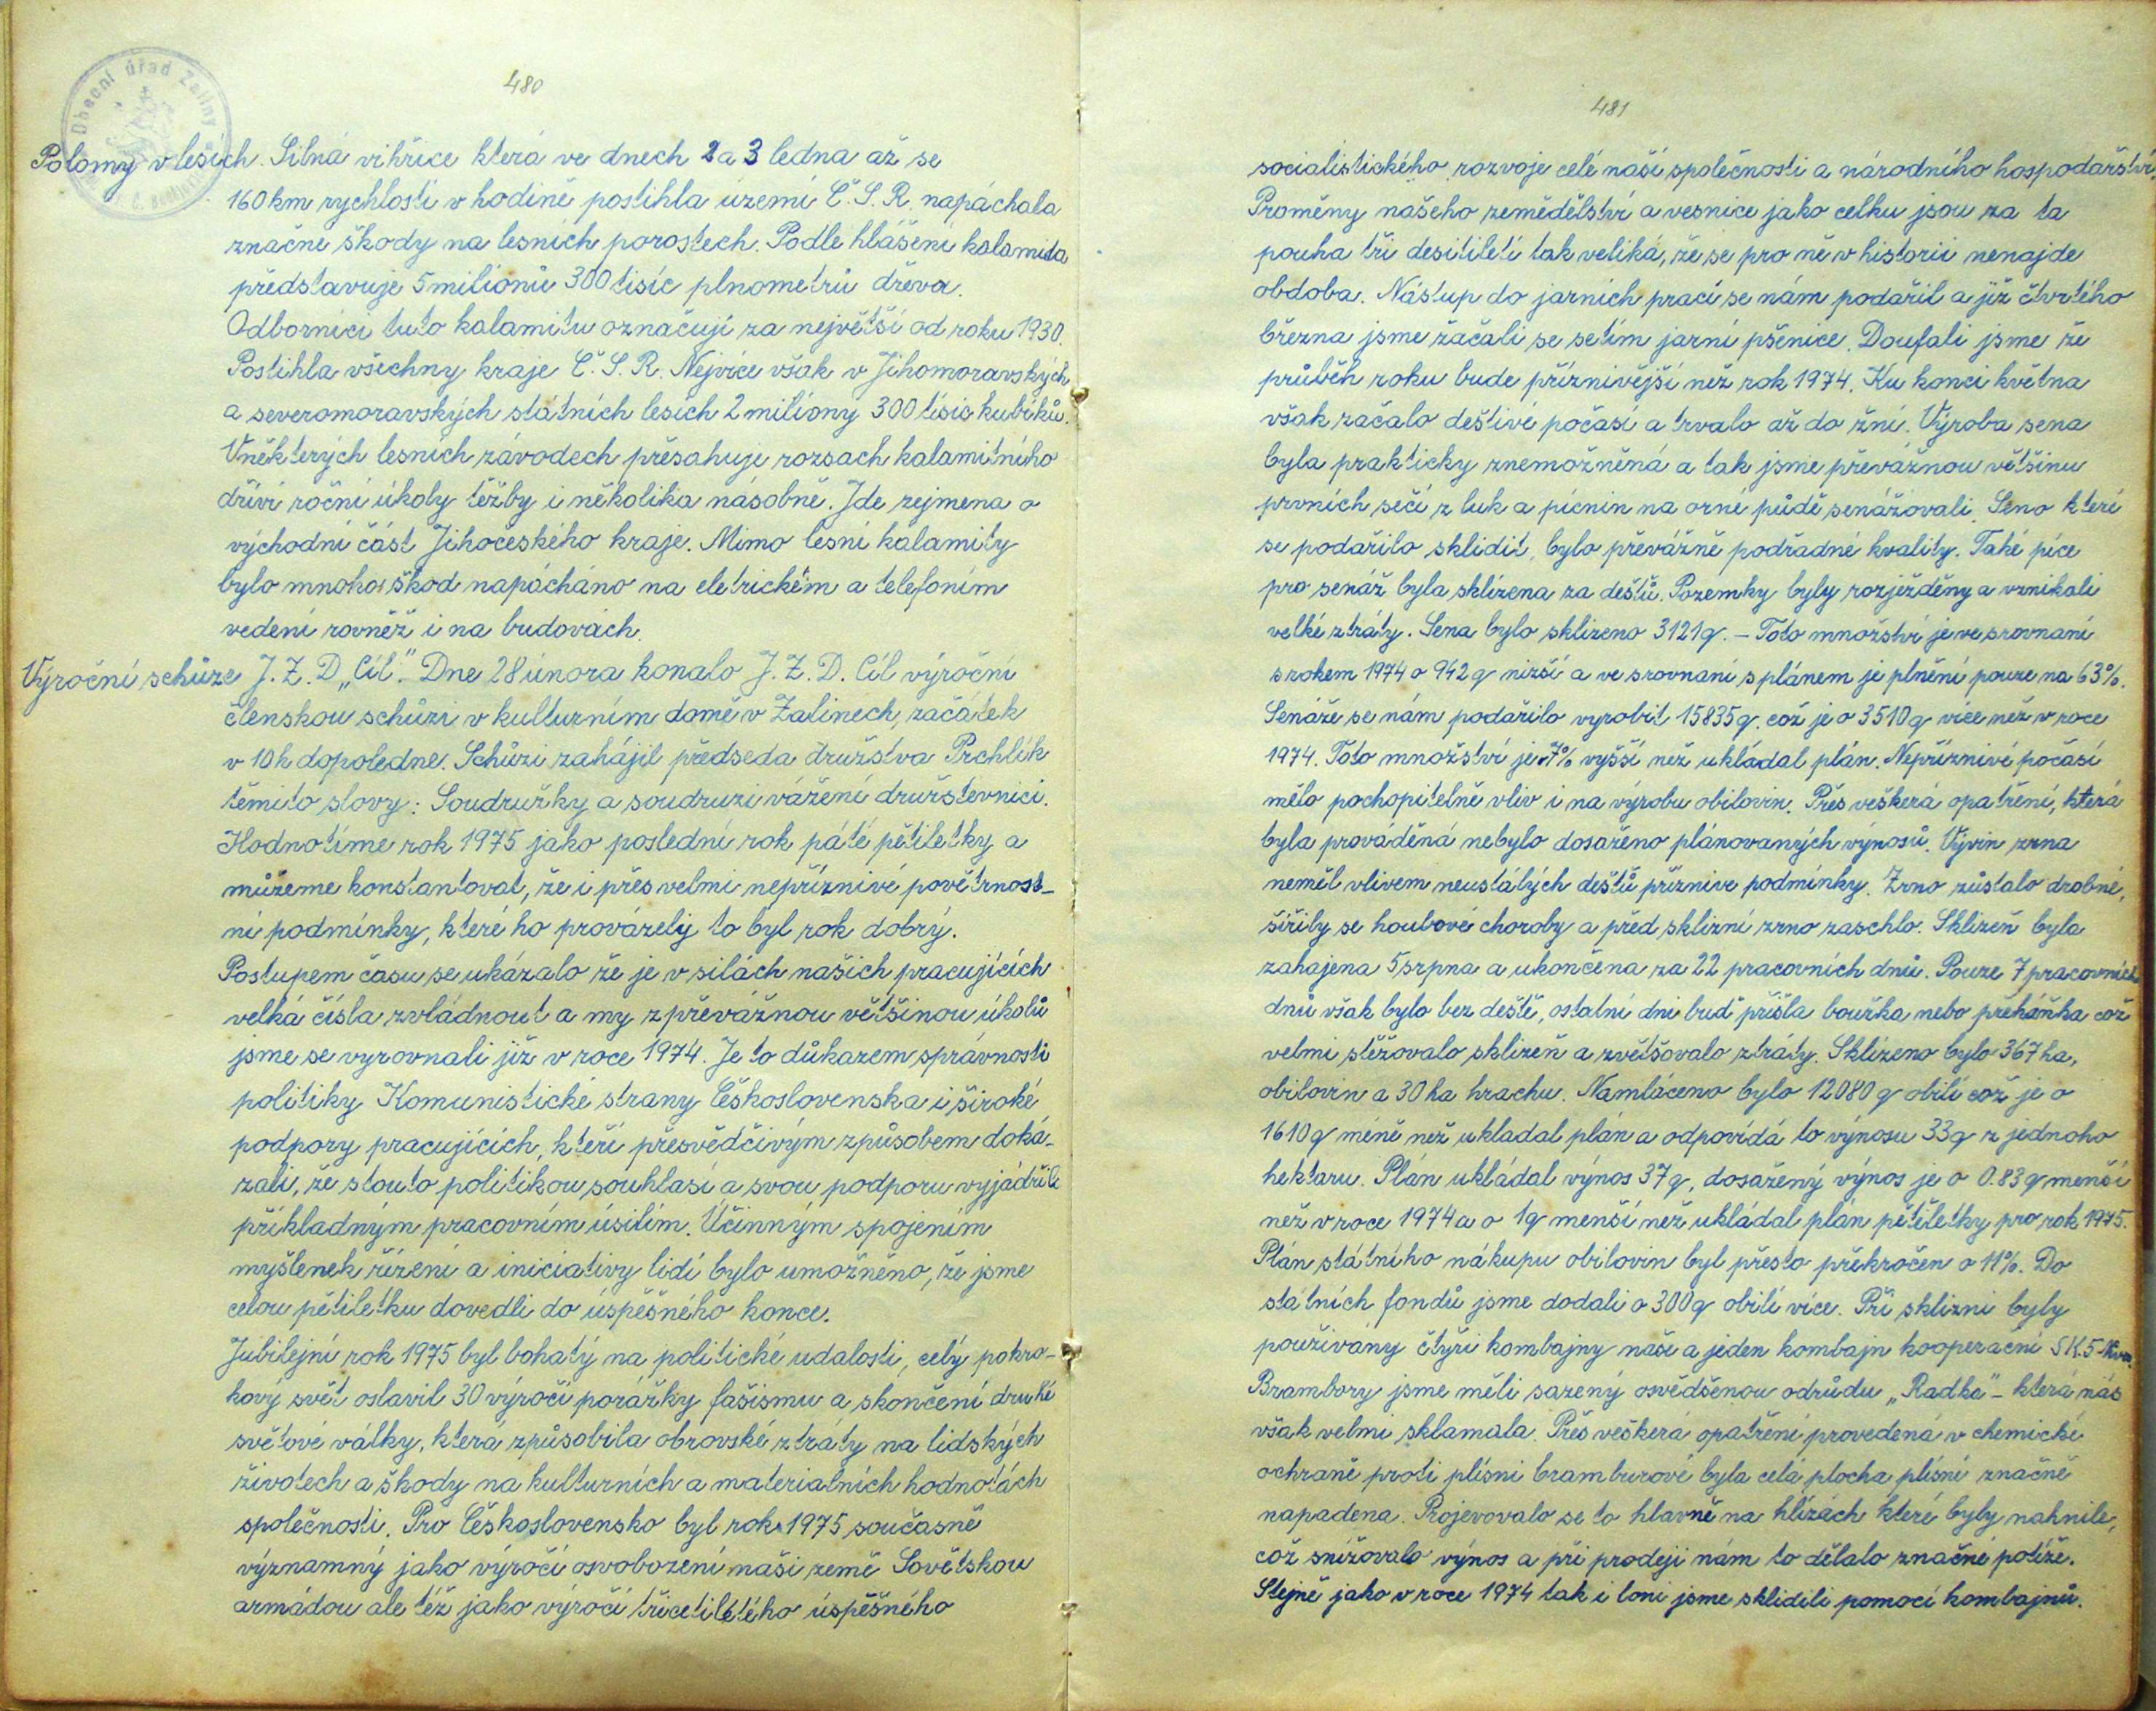 480
Obecní úřad Zaliny
Polomy v lesích. Silná vihřice která ve dnech 2 a 3 ledna až se
160 km rychlosti v hodině postihla uzemí Č.S.R. napáchala
značné škody na lesních porostech. Podle hlášení kalamita
představuje 5 milionů 300 tisíc plnometrů dřeva.
Odborníci tuto kalamitu označují za největší od roku 1930.
Postihla všechny kraje Č.S.R. Nejvíce však v Jihomoravských
a severomoravských státních lesích 2 miliony 300 tísic kubíků.
Vněkterých lesních závodech přesahuje rozsach kalamitního
dříví roční úkoly těžby i několika násobně. Jde zejmena o
východní část Jihočeského kraje. Mimo lesní kalamity
bylo mnoho škod napácháno na eletrickém a telefoním
vedení rovněž i na budovách.
Výroční schůze J.Z.D. „Cíl". Dne 28 února konalo J.Z.D. Cíl výroční
členskou schůzi v kulturním domě v Zalinech, začátek
v 10h dopoledne. Schůzi zahájil předseda družstva Prchlík
těmito slovy: Soudružky a soudruzi vážení družstevníci.
Hodnotíme rok 1975 jako poslední rok páté pětiletky a
můžeme konstantovat, že i přes velmi nepříznivé povětrnost-
ní podmínky, které ho provázely to byl rok dobrý.
Postupem času se ukázalo že je v silách našich pracujících
velká čísla zvládnout a my z převážnou většinou úkolů
jsme se vyrovnali již v roce 1974. Je to důkazem správnosti
politiky Komunistické strany Československa i široké
podpory pracujících, kteří přesvědčivým způsobem doká-
zali, že stouto politikou souhlasí a svou podporu vyjádřili
příkladným pracovním úsilím. Účinným spojením
myšlenek řízení a iniciativy lidí bylo umožněno, že jsme
celou pětiletku dovedli do úspěšného konce.
Jubilejní rok 1975 byl bohatý na politické udalosti, celý pokro-
kový svět oslavil 30 výročí porážky fašismu a skončení druhé
světové války, která způsobila obrovské ztráty na lidských
životech a škody na kulturních a materialních hodnotách
společnosti. Pro Československo byl rok 1975 současně
významný jako výročí osvobození naši země Sovětskou
armádou ale též jako výročí třicetiletého úspěšného
481
socialistického rozvoje celé naší společnosti a národního hospodářství.
Proměny našeho zemědělství a vesnice jako celku jsou za ta
pouha tři desitiletí tak veliká, že se pro ně v historii nenajde
obdoba. Nástup do jarních prací se nám podařil a již čtvrtého
března jsme začali se setím jarní pšenice. Doufali jsme že
průběh roku bude příznivější než rok 1974. Ku konci května
však začalo deštivé počasí a trvalo až do žní. Výroba sena
byla prakticky znemožněná a tak jsme převážnou většinu
prvních sečí z luk a pícnin na orné půdě senážovali. Seno kteri
se podařilo sklidit, bylo převážně podřadné kvality. Také píce
pro senáž byla sklízena za deště. Pozemky byly rozježděny a vznikali
velké ztráty. Sena bylo sklizeno 3121q. – Toto množství je ve srovnaní
s rokem 1974 o 942 q nizší a ve srovnaní s plánem je plnění pouze na 63%.
Senáže se nám podařilo vyrobit 15835q. což je o 3510q více než v roce
1974. Toto množství je 7% vyšší než ukládal plán. Nepříznivé počasí
mělo pochopitelně vliv i na výrobu obilovin. Přes veškerá opatření, která
byla prováděná nebylo dosaženo plánovaných výnosů. Vývin zrna
neměl vlivem neustálých dešťů příznive podmínky. Zrno zůstalo drobné,
šířily se houbové choroby a před sklizní zrno zaschlo. Sklizeň byla
zahajena 5 srpna a ukončena za 22 pracovních dnů. Pouze 7 pracovních
dnů však bylo bez deště, ostatní dni buď přišla bouřka nebo přeháňka což
velmi stěžovalo sklizeň a zvětšovalo ztráty. Sklizeno bylo 367 ha,
obilovin a 30 ha hrachu. Namláceno bylo 12080 q obilí což je o
1610q méně než ukladal plán a odpovídá to výnosu 33q z jednoho
hektaru. Plán ukládal výnos 37q, dosažený výnos je o 0.83q menší
než v roce 1974 a o 1q menší než ukládal plán pětiletky pro rok 1975.
Plán státního nákupu obilovin byl přesto překročen o 11%. Do
státních fondů jsme dodali o 300q obilí více. Při sklizni byly
použivány čtyři kombajny naše a jeden kombajn kooperační SK.5
Brambory jsme měli sazený osvědšenou odrůdu „Radka" – která nás
však velmi sklamala. Přes veškerá opatření provedená v chemické
ochraně proti plísni bramburové byla celá plocha plísní značně
napadena. Projevovalo se to hlavně na hlízách které byly nahnile,
což snižovalo výnos a při prodeji nám to dělalo značné potíže.
Stejně jako v roce 1974 tak i loni jsme sklidili pomocí kombajnů.